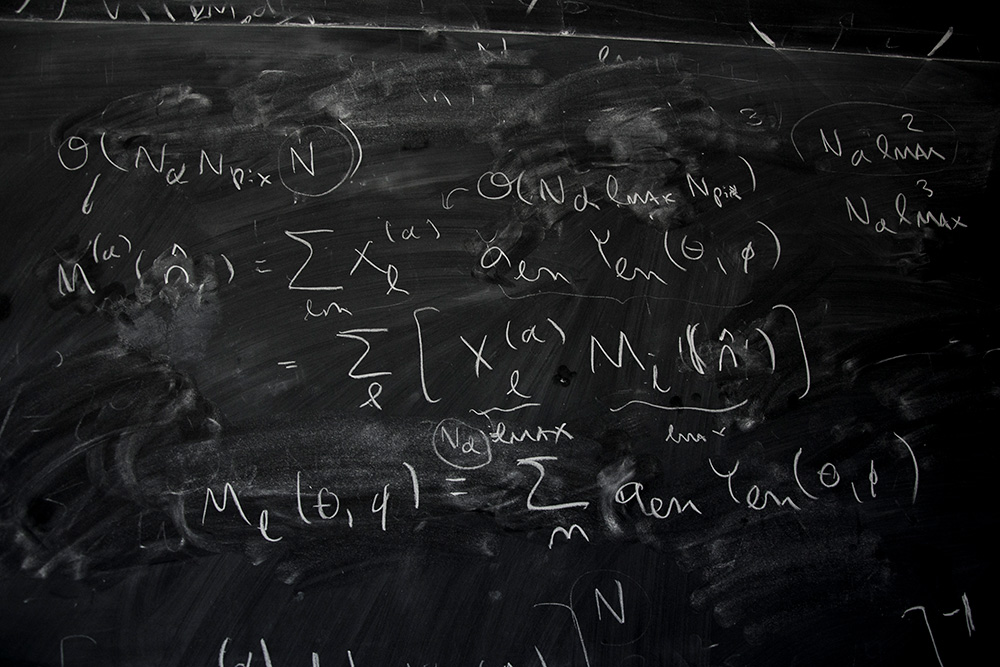 O(N_α N_pix N)
N_α l_max^2
O(N_α l_max N_pix)
N_α l_max^3
M^(α)(n̂) = Σ_lm X_l^(α) a_lm Y_lm(θ,φ)
= Σ_l [X_l^(α) M_l(n̂)]
N_α l_max
M_l(θ,φ) = Σ_m a_lm Y_lm(θ,φ)
N
]^-1